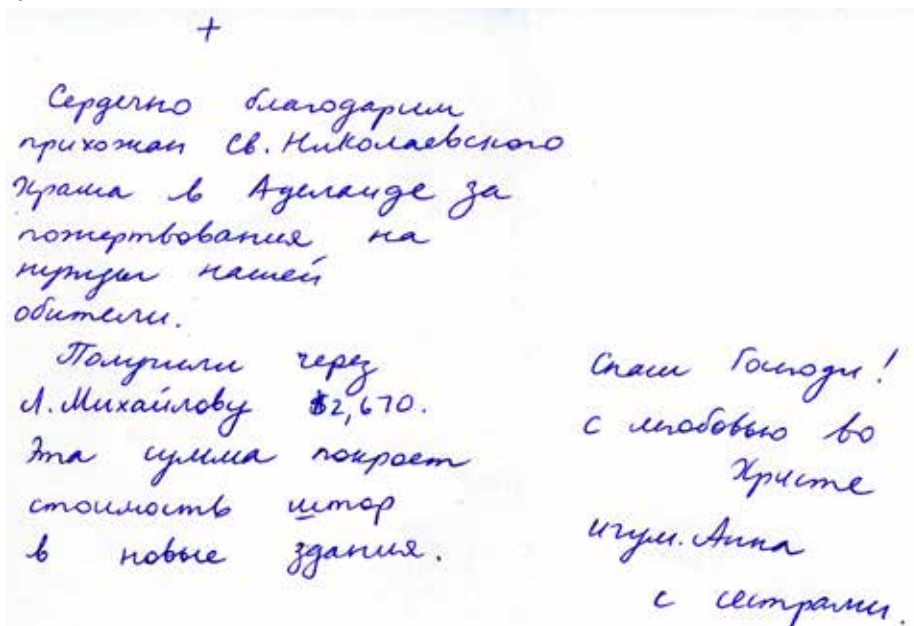 +
Сердечно благодарим
прихожан Св. Николаевского
Храма в Аделаиде за
пожертвования на
нужды нашей
обители.
Получили через
Л. Михайлову $2,670.
Эта сумма покроет
стоимость штор
в новые здания.
Спаси Господи!
с любовью во
Христе
игум. Анна
с сестрами.